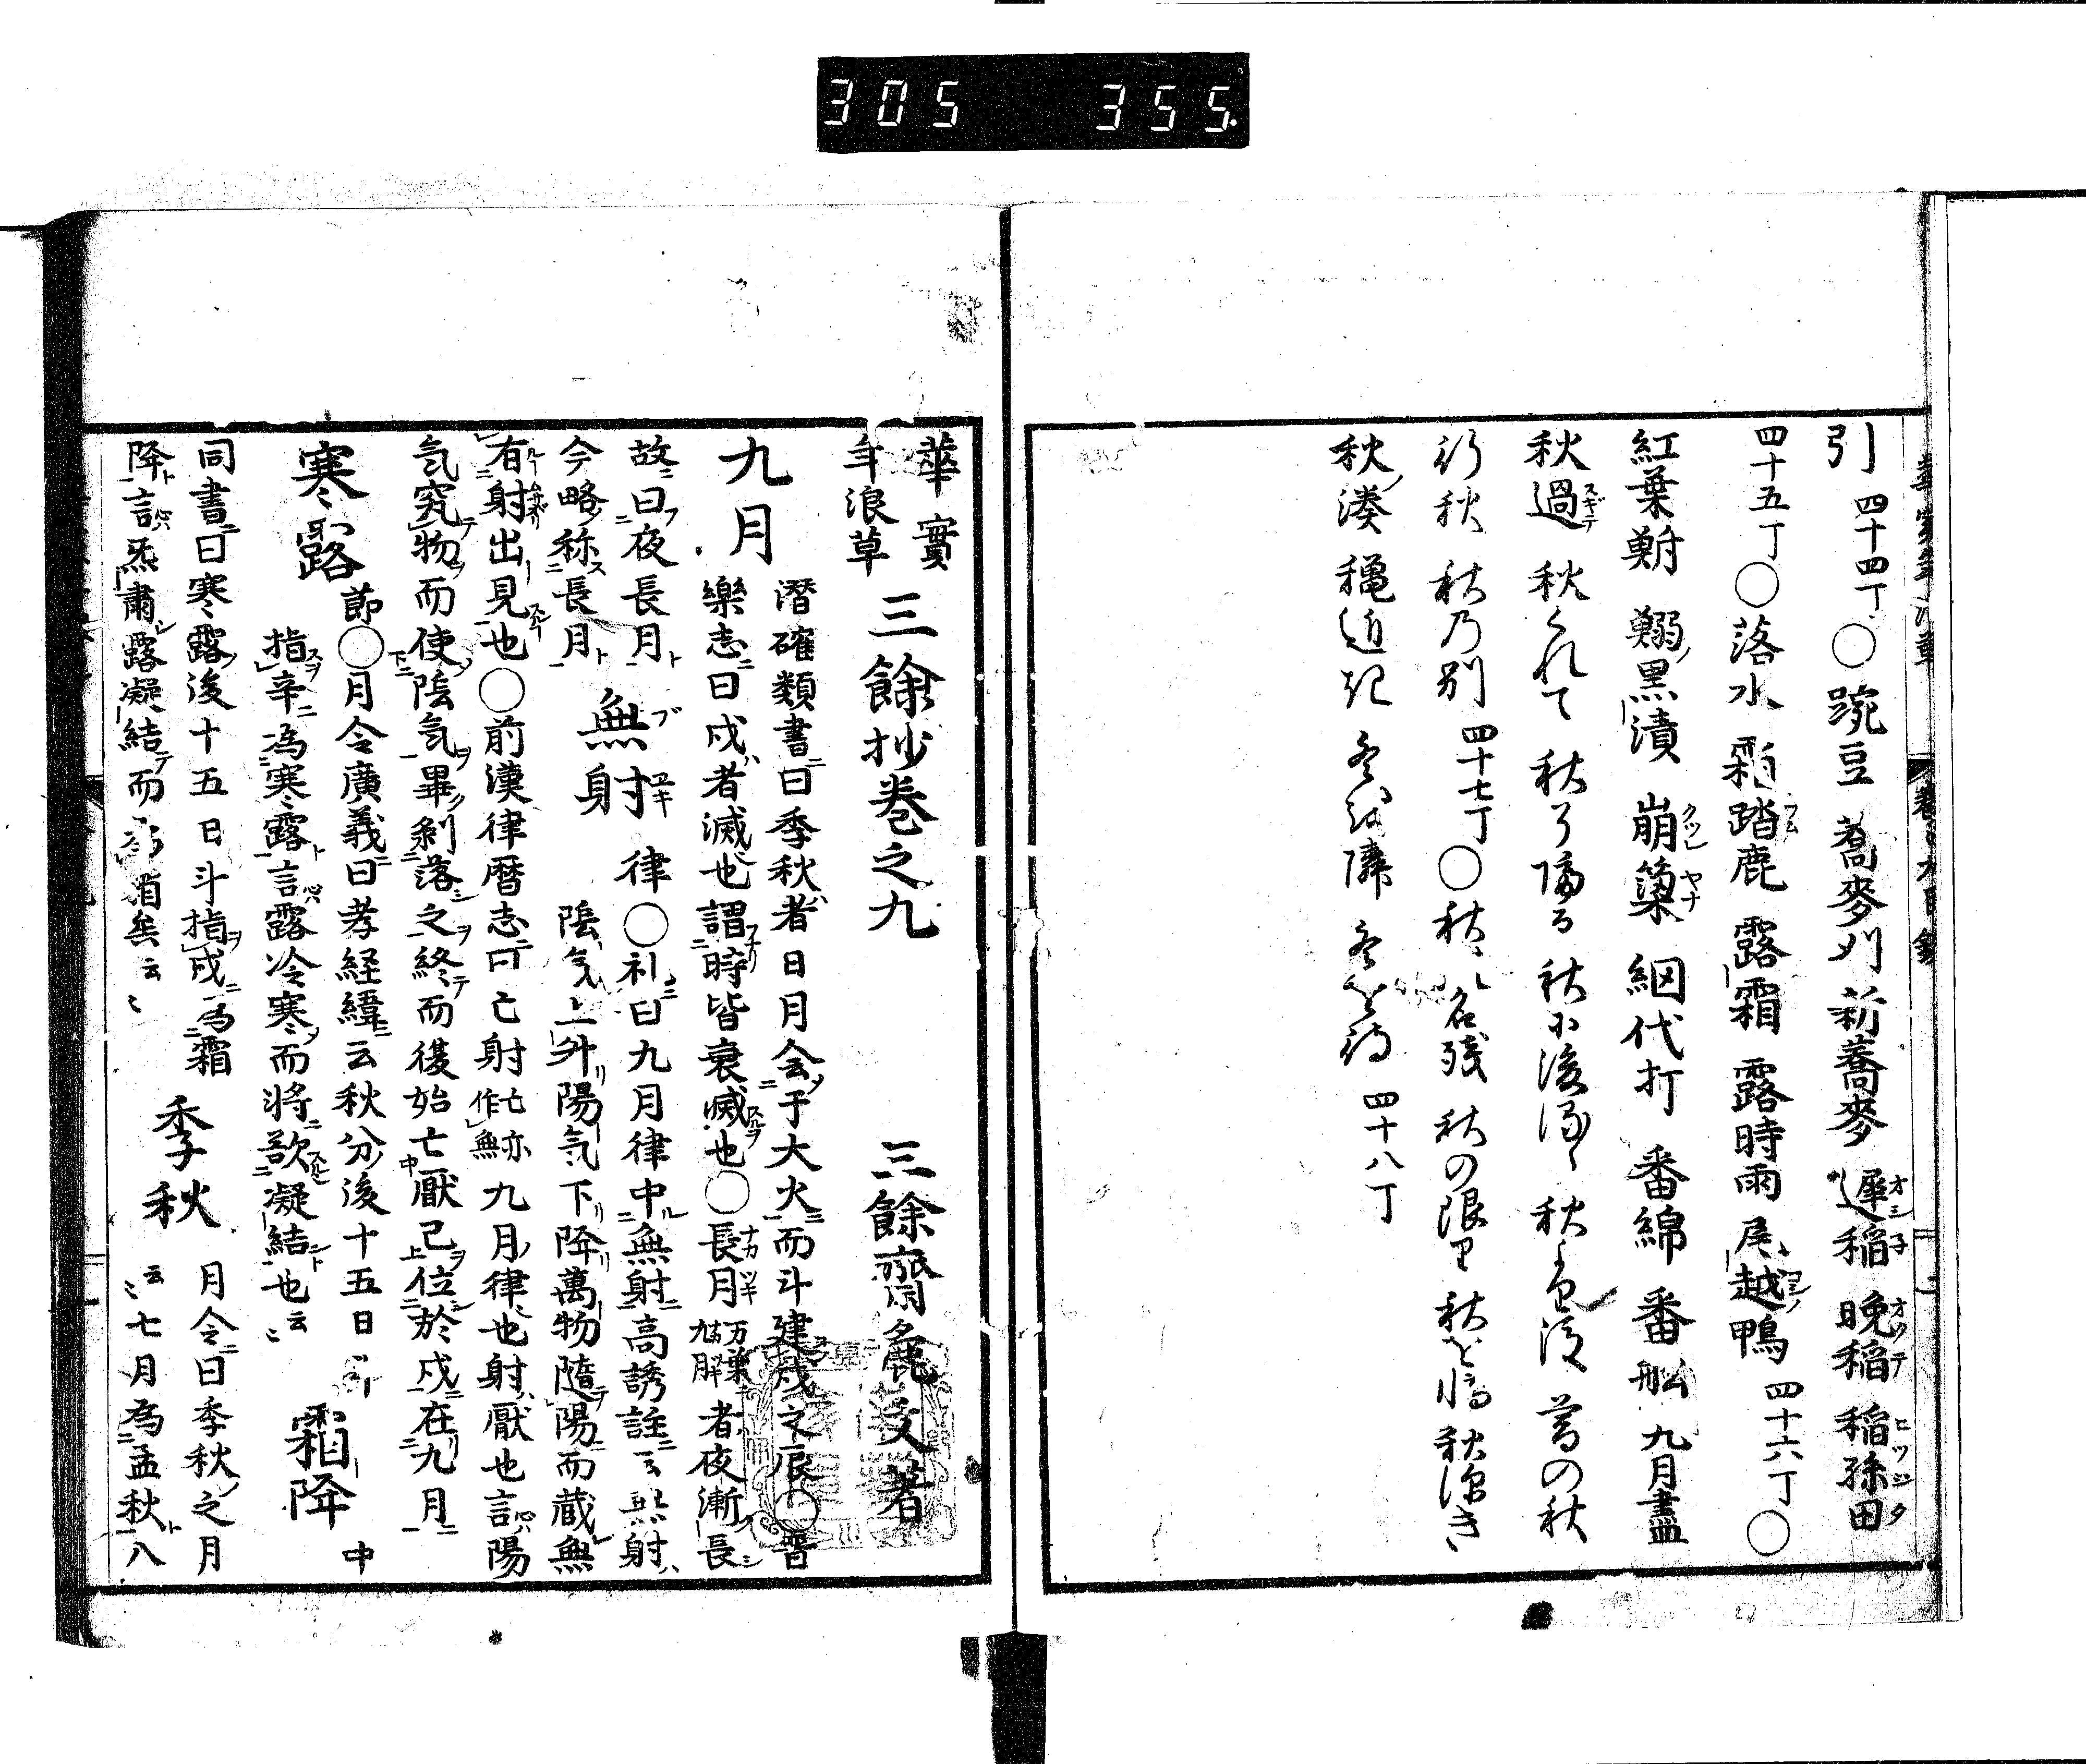 305 355
引 四十四丁 ○豌豆 蕎麥刈 新蕎麥 遲稲 晩稲 稲孫田
四十五丁 ○落水 霜踏鹿 露霜 露時雨 尾越鴨 四十六丁 ○
紅葉鮒 鰯黒漬 崩簗 網代打 番綿 番船 九月盡
秋過 秋くれて 秋に後るゝ 暮の秋
行秋 秋乃別 四十七丁 ○秋の名残 秋の限り 秋を惜
秋湊 冬近 冬隣 冬を待 四十八丁
華實
年浪草 三餘抄巻之九 三餘齋麁文著
九月 潛確類書曰季秋者日月会于大火而斗建戍之辰○晋
樂志曰戍者滅也謂時皆衰滅也○長月 万葉九 者夜漸長
故曰夜長月 律○礼曰九月律中無射高誘註云無射
今略称長月 無射 陰気上升陽気下降萬物隨陽而蔵無
有射出見也○前漢律暦志曰亡射亡亦作無九月律也射厭也言陽
気究物而使陰気畢剝落之終而復始亡厭已位於戍在九月
寒露 節○月令廣義曰孝経緯云秋分後十五日
指辛為寒露言露冷寒而將欲凝結也云〻 霜降 中
同書曰寒露後十五日斗指戍為霜 季秋 月令曰季秋之月
降言気肅露凝結而 霜矣云〻 云〻七月為孟秋八